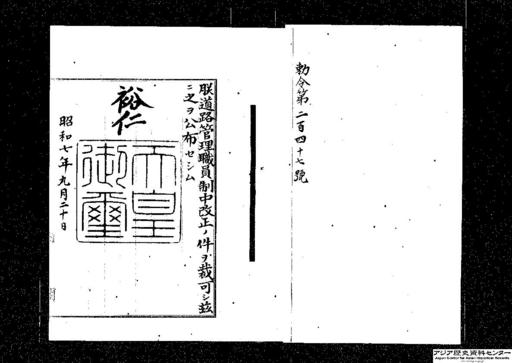 勅令第二百四十七號
朕道路管理職員制中改正ノ件ヲ裁可シ茲
ニ之ヲ公布セシム
裕仁
天皇
御璽
昭和七年九月二十日
アジア歴史資料センター
Japan Center for Asian Historical Records